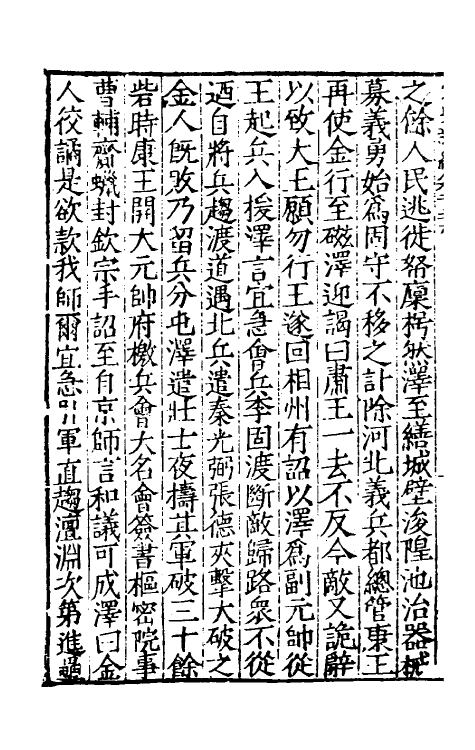 之餘人民逃徙帑廩枵然澤至繕城壁浚隍池治器械
募義勇始爲固守不移之計除河北義兵都總管康王
再使金行至磁澤迎謁曰肅王一去不反今敵又詭辭
以致大王願勿行王遂回相州有詔以澤爲副元帥從
王起兵入援澤言宜急會兵李固渡斷敵歸路衆不從
迺自將兵趨渡道遇北兵遣秦光弼張德夾擊大破之
金人旣敗乃留兵分屯澤遣壯士夜擣其軍破三十餘
砦時康王開大元帥府檄兵會大名會簽書樞密院事
曹輔齎蠟封欽宗手詔至自京師言和議可成澤曰金
人狡譎是欲款我師爾宜急引軍直趨澶淵次第進壘